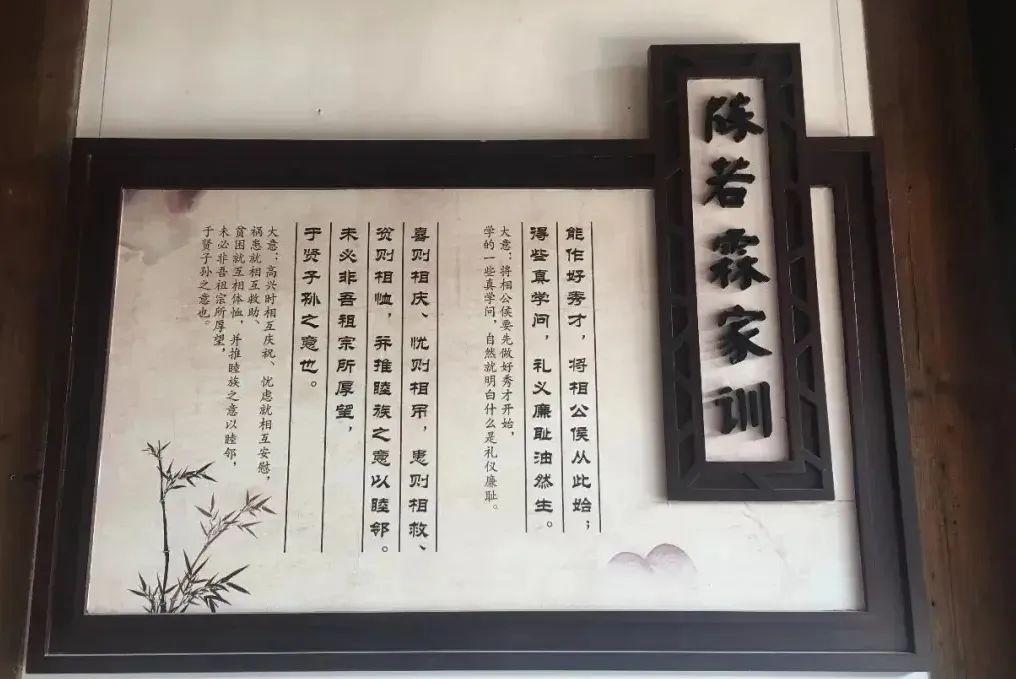 陈若霖家训
能作好秀才，将相公侯从此始；
得些真学问，礼义廉耻油然生。
大意：将相公侯要先做好秀才开始，
学的一些真学问，自然就明白什么是礼仪廉耻。
喜则相庆、忧则相吊，患则相救、
贫则相恤，并推睦族之意以睦邻。
未必非吾祖宗所厚望，
于贤子孙之意也。
大意：高兴时相互庆祝、忧虑就相互安慰，
祸患就相互救助、
贫困就互相体恤，并推睦族之意以睦邻，
未必非吾祖宗所厚望，
于贤子孙之意也。